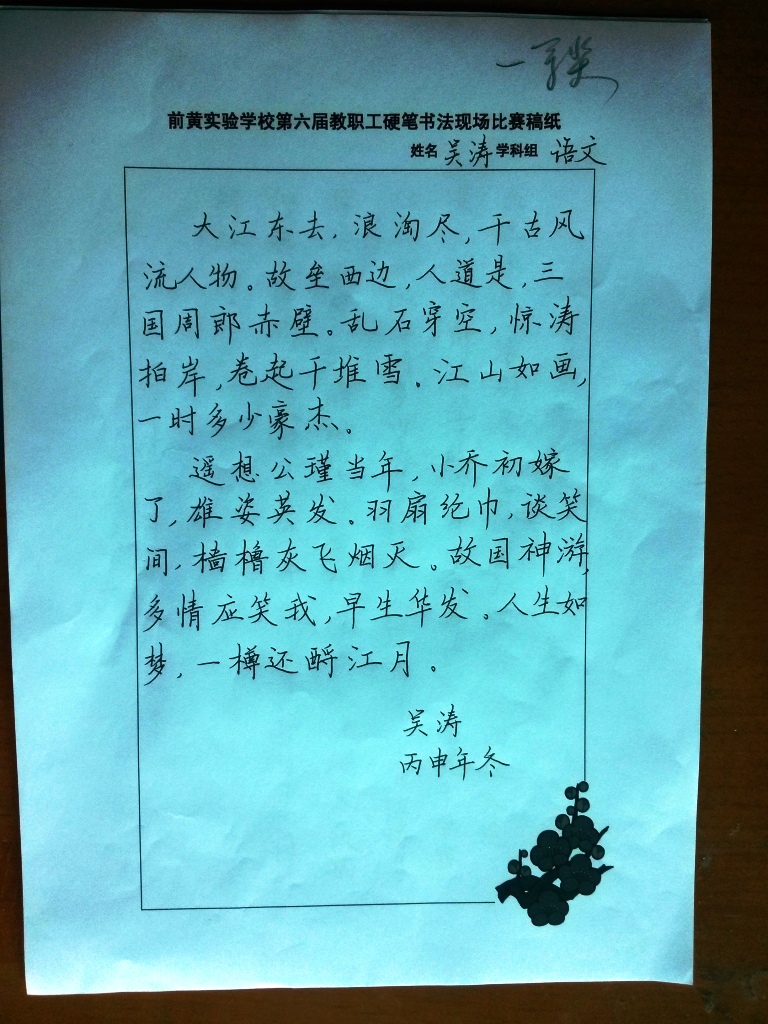 一等奖
前黄实验学校第六届教职工硬笔书法现场比赛稿纸
姓名 吴涛 学科组 语文
大江东去，浪淘尽，千古风
流人物。故垒西边，人道是，三
国周郎赤壁。乱石穿空，惊涛
拍岸，卷起千堆雪。江山如画，
一时多少豪杰。
遥想公瑾当年，小乔初嫁
了，雄姿英发。羽扇纶巾，谈笑
间，樯橹灰飞烟灭。故国神游，
多情应笑我，早生华发。人生如
梦，一樽还酹江月。
吴涛
丙申年冬